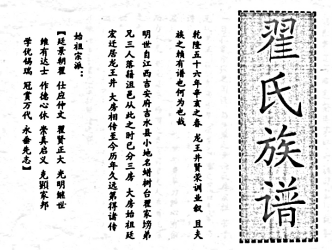 翟氏族谱
乾隆五十六年辛亥之春 龙王井贤荣训业叙 且夫
族之赖有谱也何为也哉
明世自江西吉安府吉水县小地名蜡树台翟家塝弟
兄三人落籍沮邑从此之时已分三房 大房始祖廷
宏迁居龙王井 大房相传至今历年久远第得诸传
始祖宗派：
【廷景朝翟 仕应仲文 翟贤正大 光明继世
维有达士 作德心休 崇真启义 克顕家邦
学化锡瑞 冠赏万代 永垂先名】